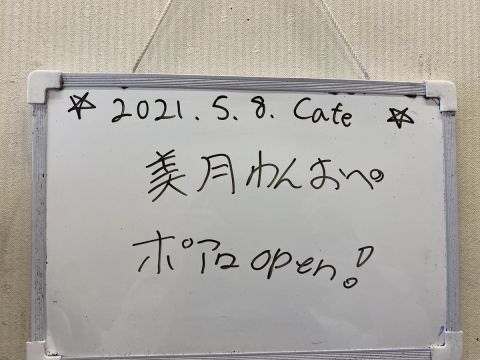 ☆ 2021.5.8. Cafe ☆
美月わんおぺ
ポアロ open!